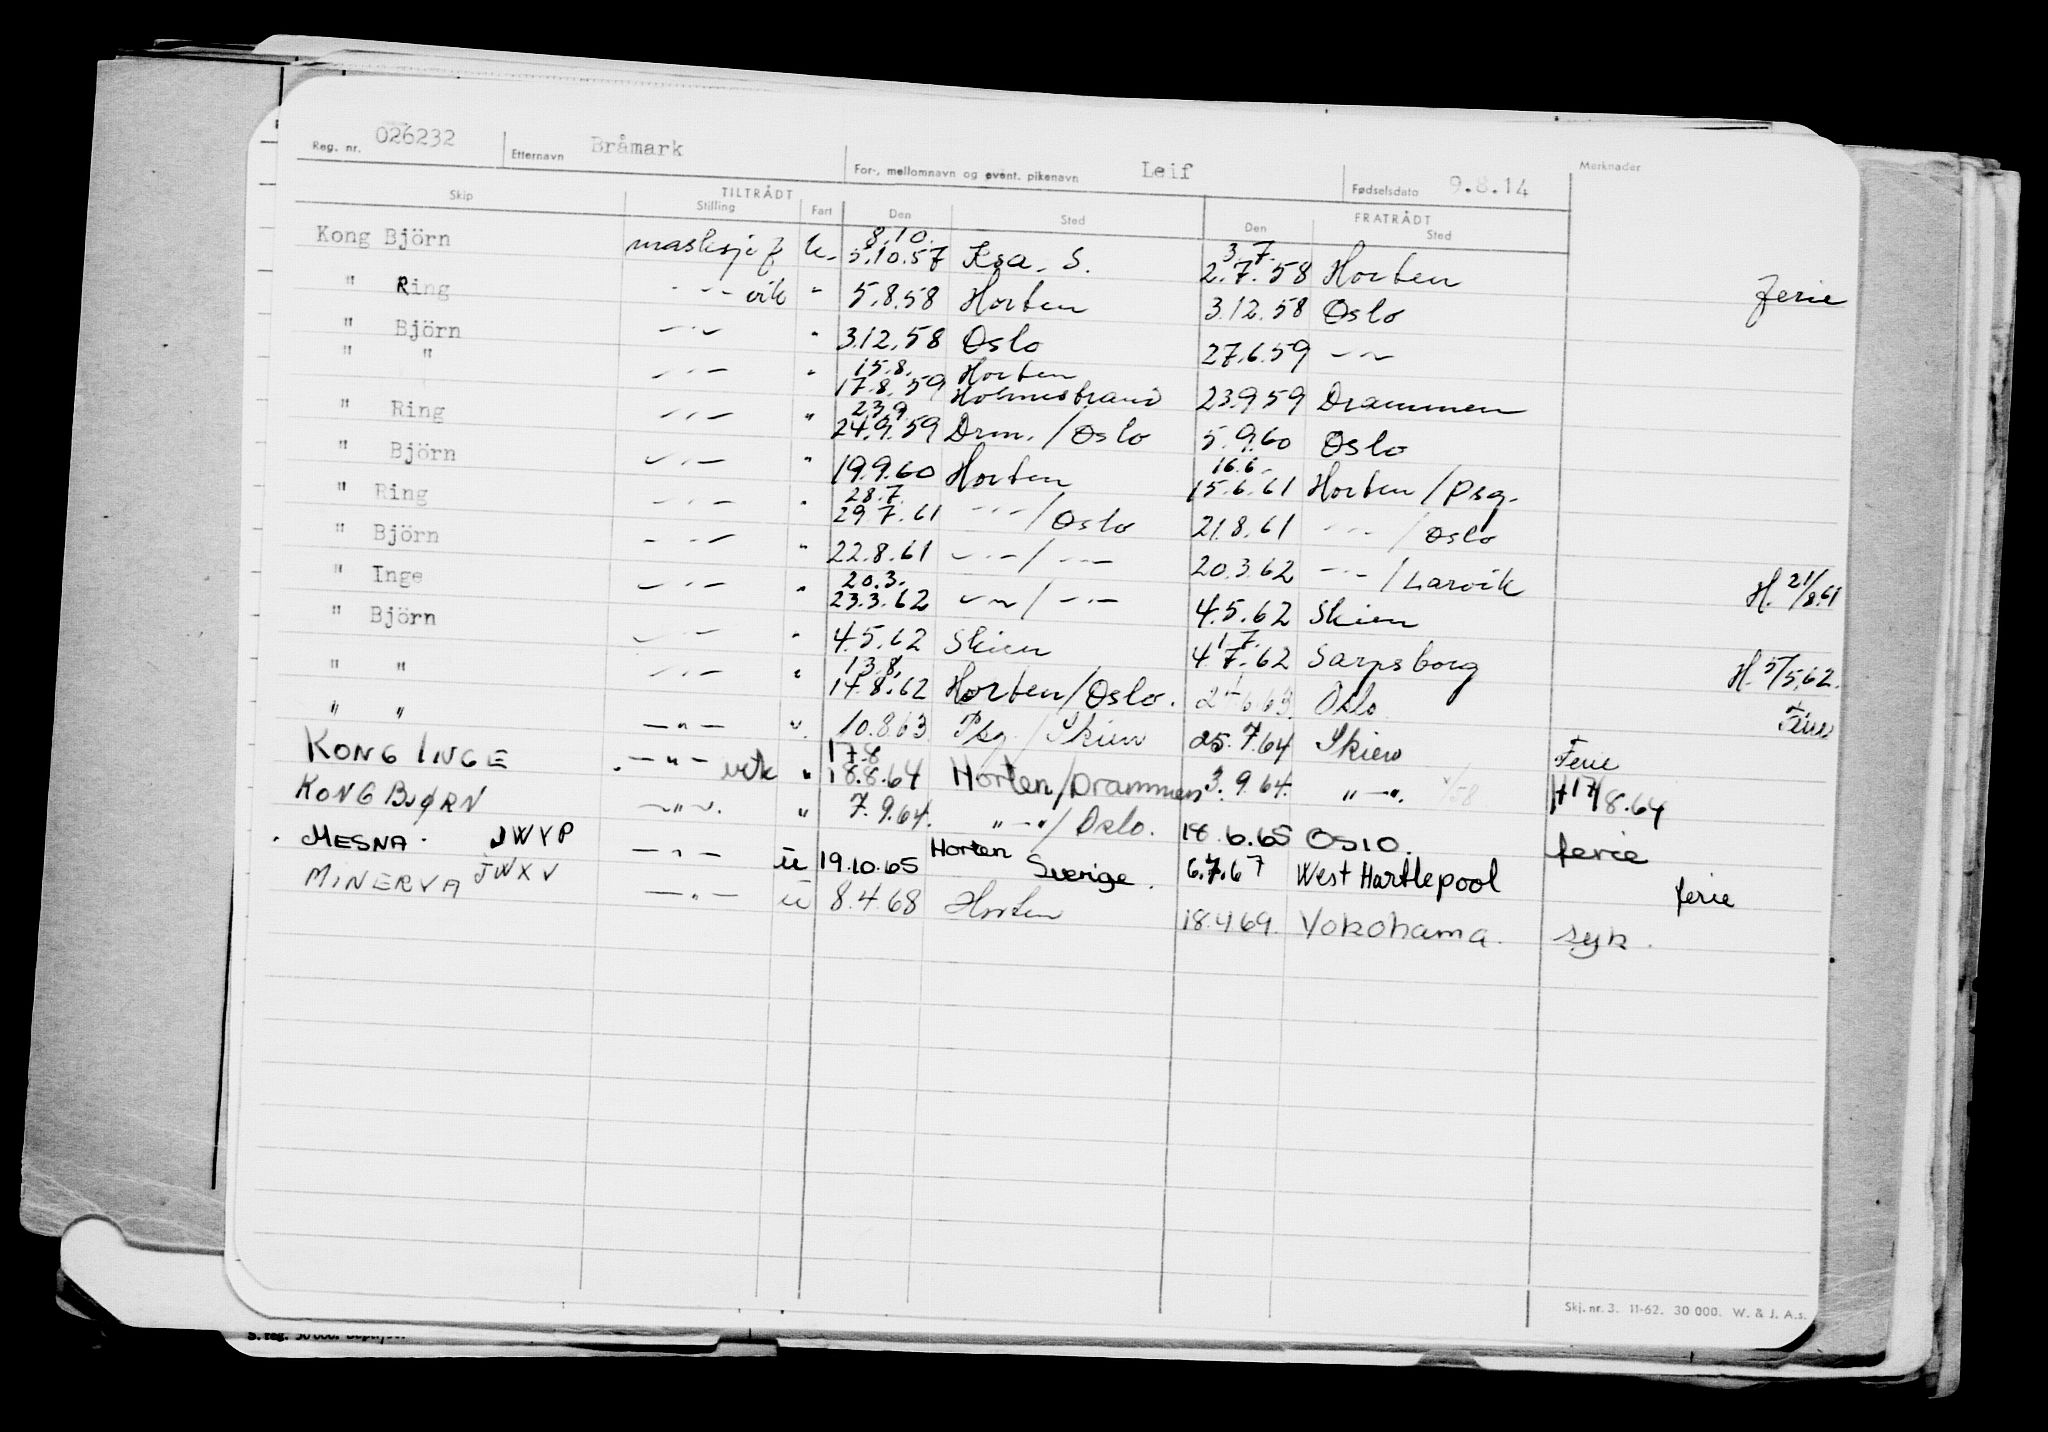 Reg. nr. 026232 Etternavn Bråmark For-, mellomnavn og event. pikenavn Leif Fødselsdato 9.8.14 Merknader
TILTRÅDT FRATRÅDT
Skip Stilling Fart Den Sted Den Sted
8.10. 3.7.
Kong Björn masksjef u. 5.10.57 Ksa. S. 2.7.58 Horten ferie
" Ring -"- vik " 5.8.58 Horten 3.12.58 Oslo
" Björn -"- " 3.12.58 Oslo 27.6.59 -"-
15.8. Horten
" " -"- " 17.8.59 Holmestrand 23.9.59 Drammen
23.9.
" Ring -"- " 24.9.59 Drm. / Oslo 5.9.60 Oslo
16.6.-
" Björn -"- " 19.9.60 Horten 15.6.61 Horten / Psg.
28.7.
" Ring -"- " 29.7.61 -"- / Oslo 21.8.61 -"- / Oslo
" Björn -"- " 22.8.61 -"- / -"- 20.3.62 -"- / Larvik H. 21/8.61
20.3.
" Inge -"- " 23.3.62 -"- / -"- 4.5.62 Skien
1.7.
" Björn -"- " 4.5.62 Skien 4.7.62 Sarpsborg H. 5/5.62.
13.8.
" " -"- " 14.8.62 Horten / Oslo. 6.63. Oslo Ferie
" " -"- " 10.8.63 Psg. / Skien 25.7.64 Skien Ferie
17.8
KONG INGE -"- vik " 18.8.64 Horten / Drammen 3.9.64. "-". H 17/8.64
KONG BJØRN -"-. " 7.9.64. "-" / Oslo. 18.6.65 OSLO. ferie
MESNA JWYP -"- u 19.10.65 Horten Sverige. 6.7.67 West Hartlepool ferie
MINERVA JWXV -"- u 8.4.68 Horten 18.4.69. Yokohama. syk.
Skj. nr. 3. 11-62. 30 000. W. & J. A.s.
S. reg. 30 000.